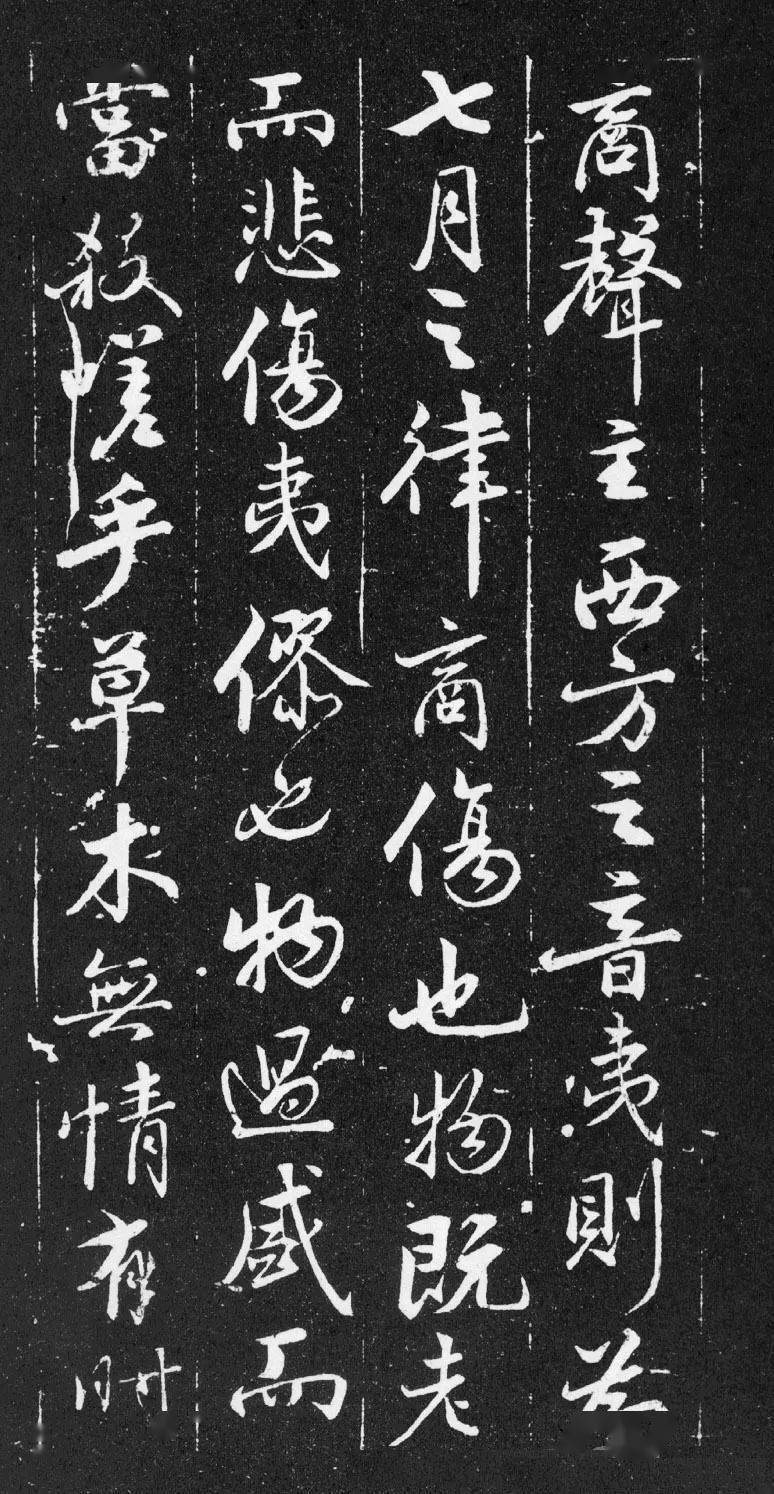 商聲主西方之音夷則為
七月之律商傷也物既老
而悲傷夷僇也物過盛而
當殺嗟乎草木無情有時